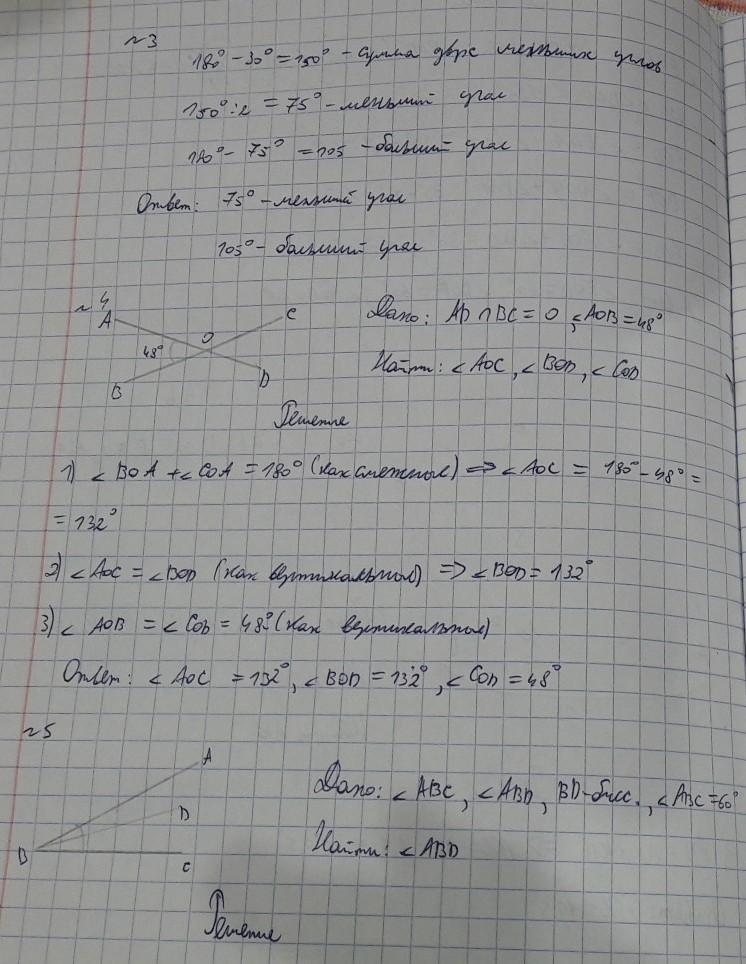 №3
180° - 30° = 150° - сумма двух меньших углов
150° : 2 = 75° - меньший угол
180° - 75° = 105 - больший угол
Ответ: 75° - меньший угол
105° - больший угол
№4
A
C
O
48°
B
D
Дано: AD ∩ BC = O, ∠AOB = 48°
Найти: ∠AOC, ∠BOD, ∠COD
Решение
1) ∠BOA + ∠COA = 180° (как смежные) => ∠AOC = 180° - 48° =
= 132°
2) ∠AOC = ∠BOD (как вертикальные) => ∠BOD = 132°
3) ∠AOB = ∠COD = 48° (как вертикальные)
Ответ: ∠AOC = 132°, ∠BOD = 132°, ∠COD = 48°
№5
A
D
B
C
Дано: ∠ABC, ∠ABD, BD - бисс., ∠ABC = 60°
Найти: ∠ABD
Решение